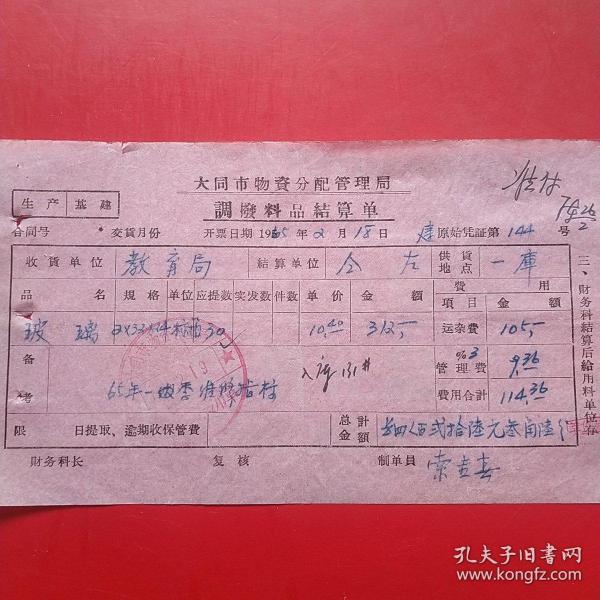 大同市物資分配管理局
調廢料品結算单
生产 基建
准付
26/2
合同号 交貨月份 开票日期 1965年2月18日 建 原始凭証第144号
收貨单位 教育局 結算单位 仝左 供貨地点 一庫
品名 規格 单位 应提数 实发数 件数 单价 金額 費用
項目 金額
玻璃 30 10.40 312,- 运杂費 105,-
备考 65年一級季准 入庫 131# %3 管理費 9.36
費用合計 114.36
限 日提取、逾期收保管費 总計金額 肆百弍拾陸元叁角陸分
财务科长 复核 制单員
三、财务科結算后給用料单位存
孔夫子旧书网
www.kongfz.com